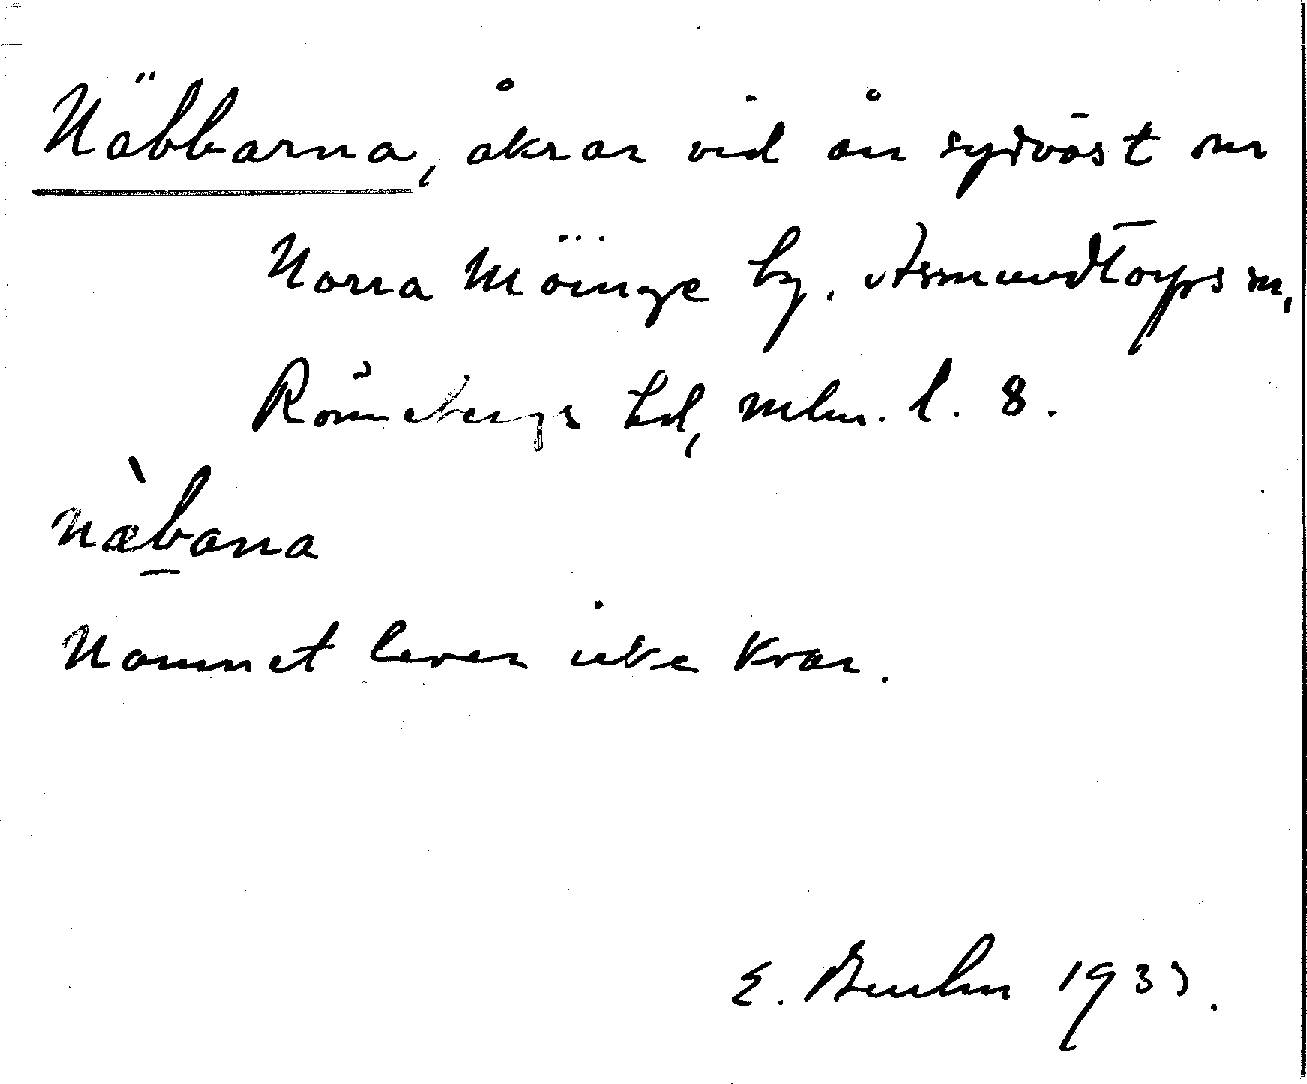 Näbbarna, åkrar vid ån sydväst om
Norra Möinge by, Asmundtorps sn,
Rönnebergs hd, mlm. l. 8.
næ̀bana
Namnet lever icke kvar.
E. 193